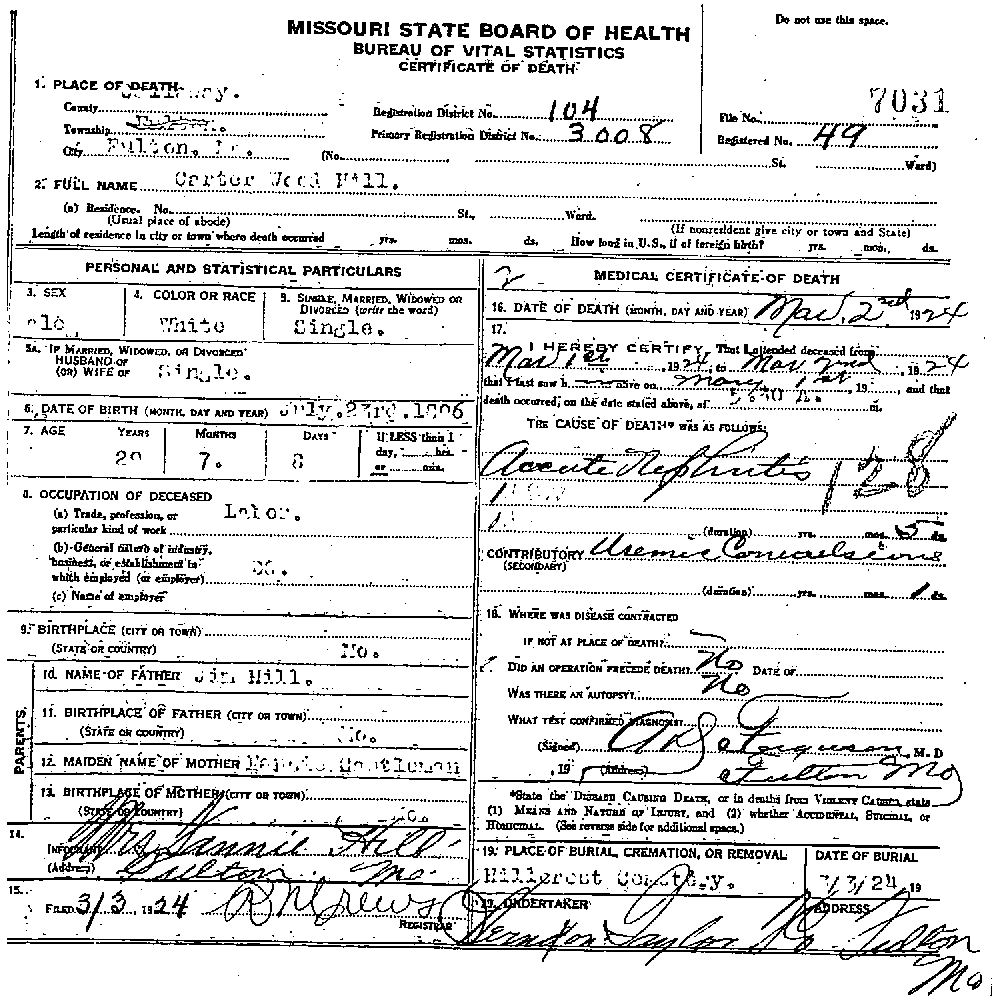 Do not use this space.
MISSOURI STATE BOARD OF HEALTH
BUREAU OF VITAL STATISTICS
CERTIFICATE OF DEATH
1. PLACE OF DEATH
County
Township
City Fulton, (No. St. Ward)
Registration District No. 104
Primary Registration District No. 3008
File No. 7031
Registered No. 49
2. FULL NAME Carter Hill.
(a) Residence. No. St., Ward.
(Usual place of abode) (If nonresident give city or town and State)
Length of residence in city or town where death occurred yrs. mos. ds. How long in U.S., if of foreign birth? yrs. mos. ds.
PERSONAL AND STATISTICAL PARTICULARS
3. SEX 4. COLOR OR RACE 5. SINGLE, MARRIED, WIDOWED OR
DIVORCED (write the word)
White Single.
5A. IF MARRIED, WIDOWED, OR DIVORCED
HUSBAND OF
(OR) WIFE OF Single.
6. DATE OF BIRTH (MONTH, DAY AND YEAR) July. 23rd.
7. AGE YEARS MONTHS DAYS If LESS than 1
day, hrs.
or min.
7. 8
8. OCCUPATION OF DECEASED
(a) Trade, profession, or
particular kind of work Labor.
(b) General nature of industry,
business, or establishment in
which employed (or employer)
(c) Name of employer
9. BIRTHPLACE (CITY OR TOWN)
(STATE OR COUNTRY) Mo.
PARENTS
10. NAME OF FATHER Jim Hill.
11. BIRTHPLACE OF FATHER (CITY OR TOWN)
(STATE OR COUNTRY) Mo.
12. MAIDEN NAME OF MOTHER
13. BIRTHPLACE OF MOTHER (CITY OR TOWN)
(STATE OR COUNTRY)
14.
INFORMANT Mrs Nannie Hill
(Address) Fulton Mo.
15.
FILED 3/3 1924
REGISTRAR
2
MEDICAL CERTIFICATE OF DEATH
16. DATE OF DEATH (MONTH, DAY AND YEAR) Mar. 2nd 1924
17.
I HEREBY CERTIFY, That I attended deceased from
Mar 1st 1924, to Mar 2nd, 1924
that I last saw h alive on 1st, 19, and that
death occurred, on the date stated above, at 5:30 A. m.
THE CAUSE OF DEATH* WAS AS FOLLOWS:
Accute Nephritis 128
(duration) yrs. mos. 5 ds.
CONTRIBUTORY Uremic Convulsions
(SECONDARY)
(duration) yrs. mos. 1 ds.
18. WHERE WAS DISEASE CONTRACTED
IF NOT AT PLACE OF DEATH?
DID AN OPERATION PRECEDE DEATH? No DATE OF
WAS THERE AN AUTOPSY? No
WHAT TEST CONFIRMED DIAGNOSIS?
(Signed) Ferguson M. D
, 19 (Address) Fulton Mo
*State the DISEASE CAUSING DEATH, or in deaths from VIOLENT CAUSES, state
(1) MEANS AND NATURE OF INJURY, and (2) whether ACCIDENTAL, SUICIDAL, or
HOMICIDAL. (See reverse side for additional space.)
19. PLACE OF BURIAL, CREMATION, OR REMOVAL DATE OF BURIAL
Hillcrest Cemetery. 3/3/24 19
20. UNDERTAKER ADDRESS
Herndon Taylor Co Fulton
Mo